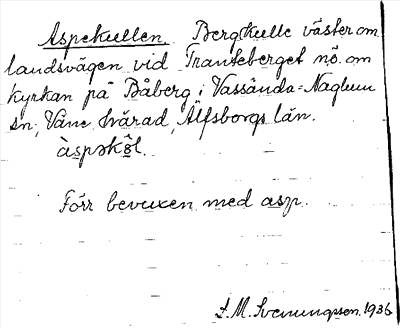 Aspekullen. Bergkulle väster om
landsvägen vid Franteberget nö. om
kyrkan på Båberg i Vassända-Naglum
sn, Väne härad, Älfsborgs län.
àspəkö̂l.
Förr bevuxen med asp.
S. M. Svenungsson. 1936